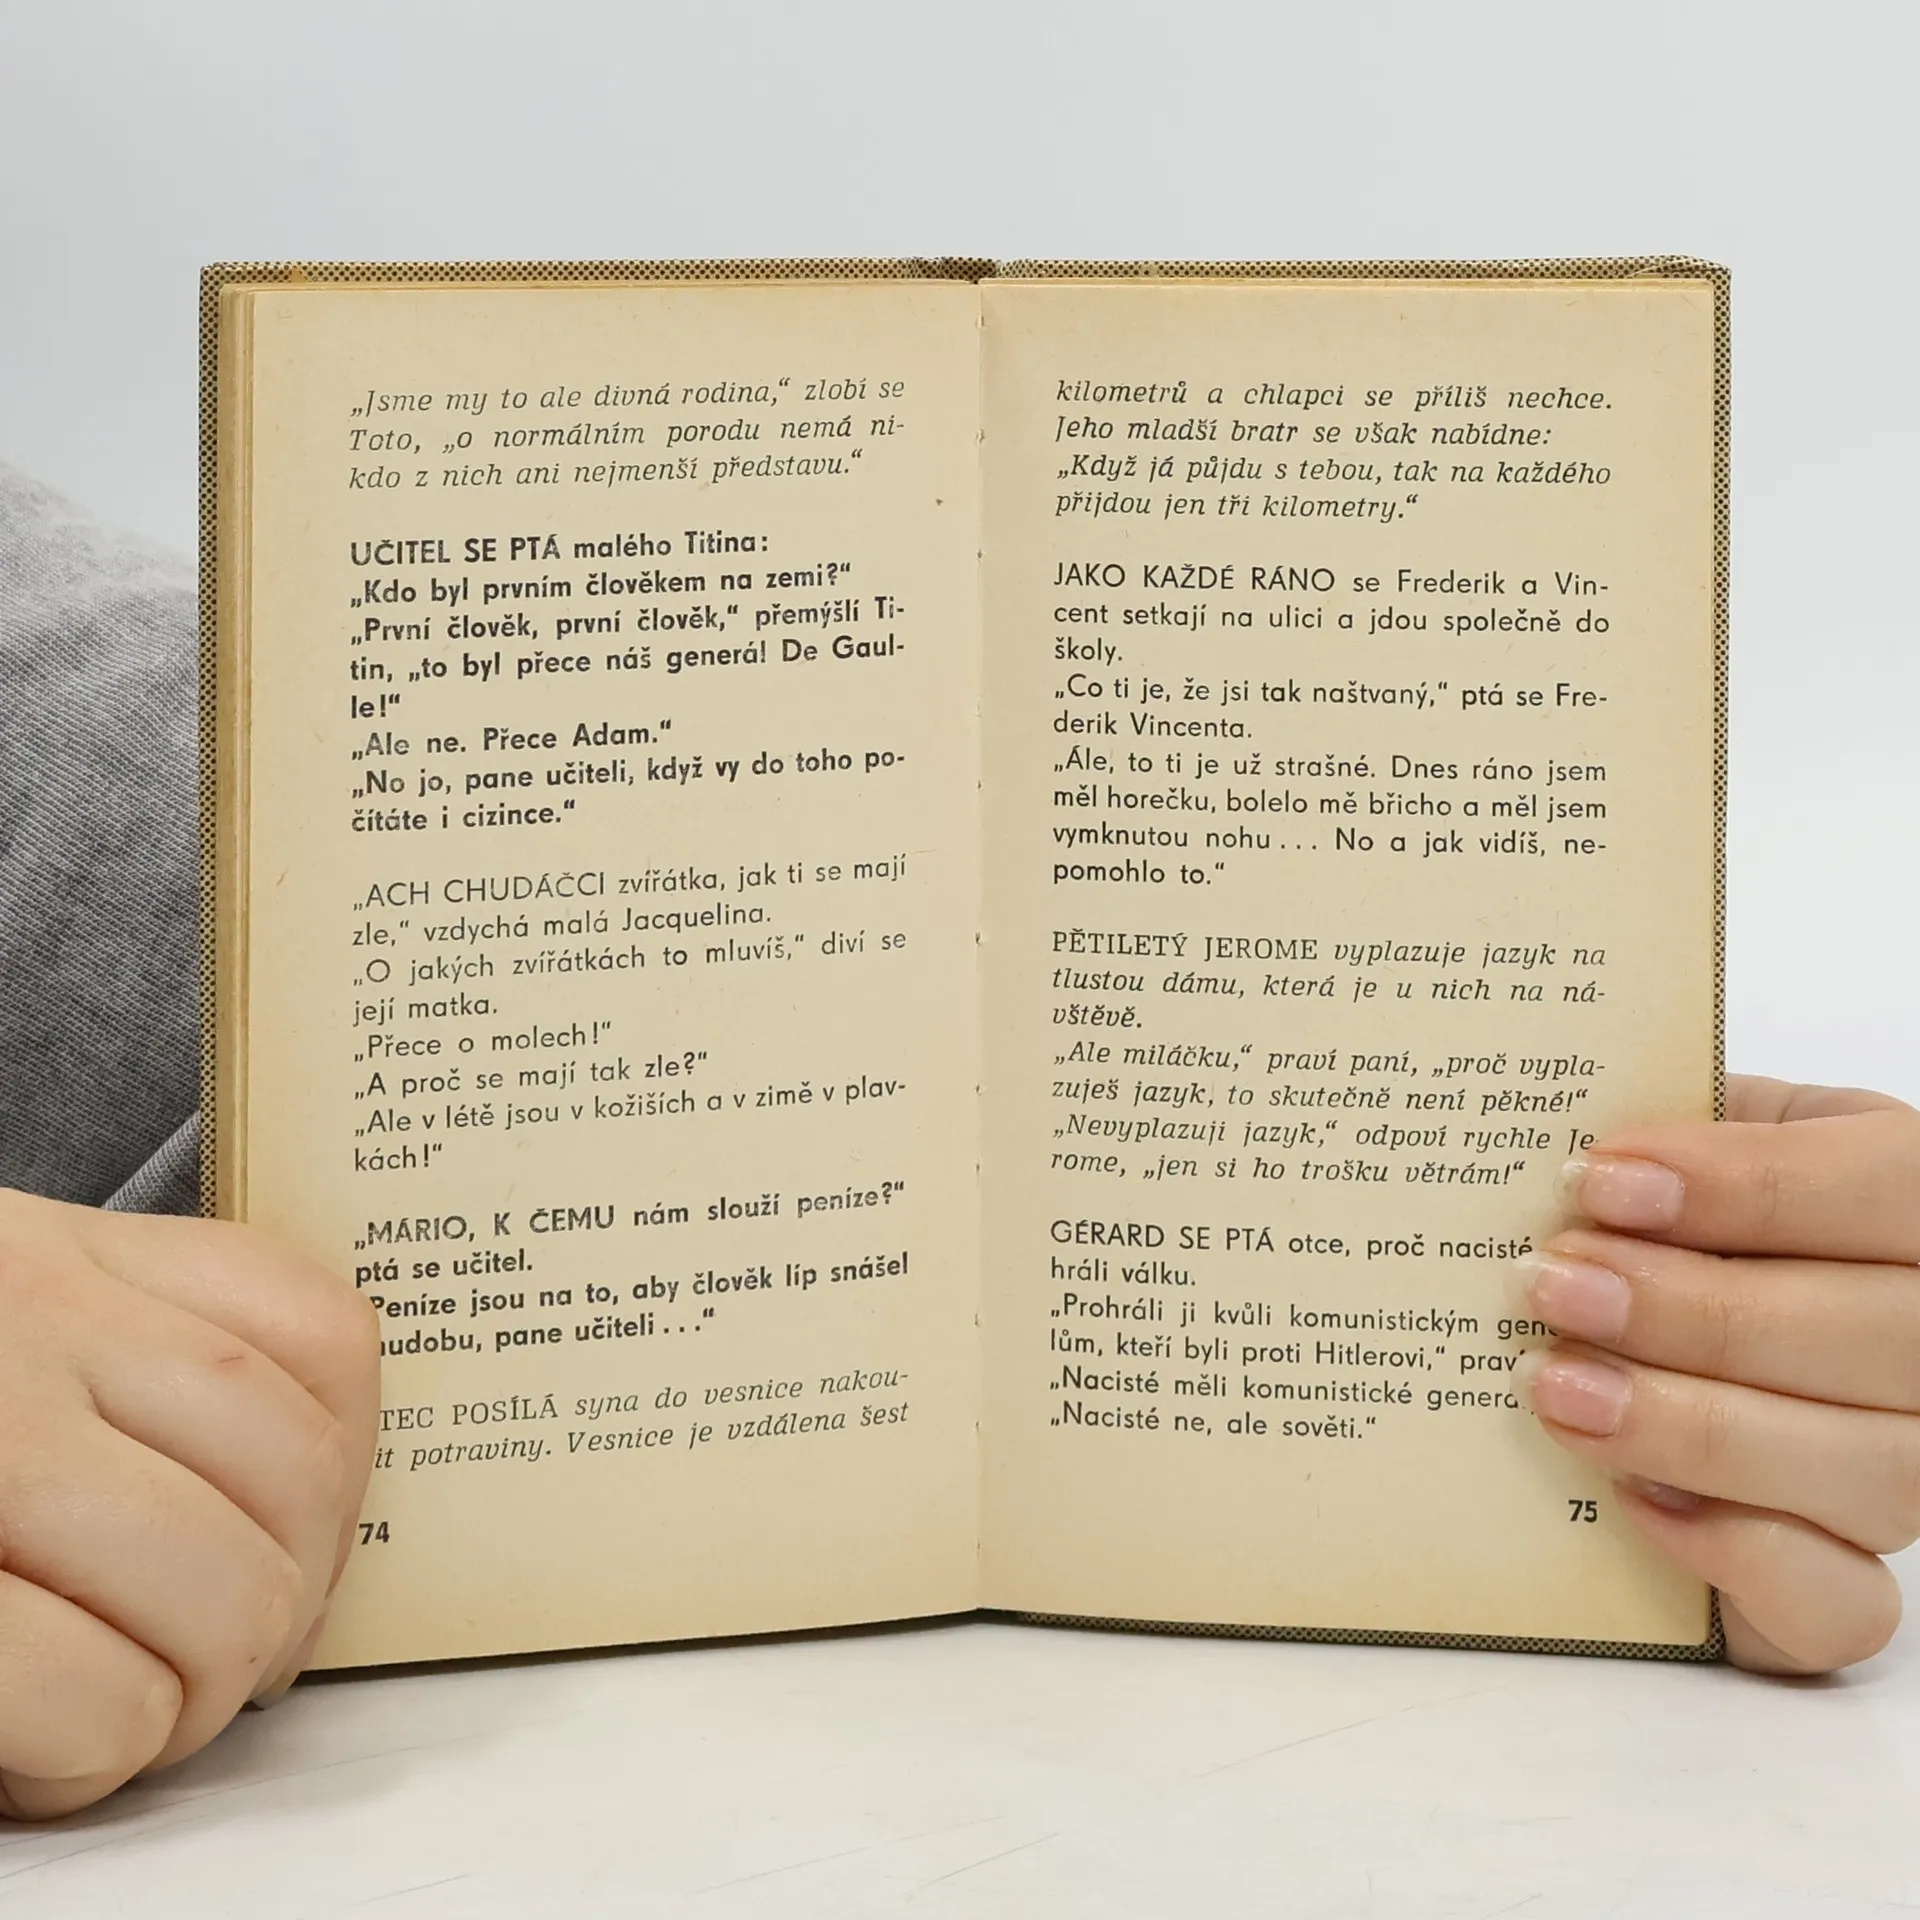 „Jsme my to ale divná rodina,“ zlobí se
Toto, „o normálním porodu nemá ni-
kdo z nich ani nejmenší představu.“
UČITEL SE PTÁ malého Titina:
„Kdo byl prvním člověkem na zemi?“
„První člověk, první člověk,“ přemýšlí Ti-
tin, „to byl přece náš generál De Gaul-
le!“
„Ale ne. Přece Adam.“
„No jo, pane učiteli, když vy do toho po-
čítáte i cizince.“
„ACH CHUDÁČCI zvířátka, jak ti se mají
zle,“ vzdychá malá Jacquelina.
„O jakých zvířátkách to mluvíš,“ diví se
její matka.
„Přece o molech!“
„A proč se mají tak zle?“
„Ale v létě jsou v kožiších a v zimě v plav-
kách!“
„MÁRIO, K ČEMU nám slouží peníze?“
ptá se učitel.
Peníze jsou na to, aby člověk líp snášel
hudobu, pane učiteli...“
TEC POSÍLÁ syna do vesnice nakou-
it potraviny. Vesnice je vzdálena šest
74
kilometrů a chlapci se příliš nechce.
Jeho mladší bratr se však nabídne:
„Když já půjdu s tebou, tak na každého
přijdou jen tři kilometry.“
JAKO KAŽDÉ RÁNO se Frederik a Vin-
cent setkají na ulici a jdou společně do
školy.
„Co ti je, že jsi tak naštvaný,“ ptá se Fre-
derik Vincenta.
„Ále, to ti je už strašné. Dnes ráno jsem
měl horečku, bolelo mě břicho a měl jsem
vymknutou nohu... No a jak vidíš, ne-
pomohlo to.“
PĚTILETÝ JEROME vyplazuje jazyk na
tlustou dámu, která je u nich na ná-
vštěvě.
„Ale miláčku,“ praví paní, „proč vypla-
zuješ jazyk, to skutečně není pěkné!“
„Nevyplazuji jazyk,“ odpoví rychle Je-
rome, „jen si ho trošku větrám!“
GÉRARD SE PTÁ otce, proč nacisté
hráli válku.
„Prohráli ji kvůli komunistickým gene
lům, kteří byli proti Hitlerovi,“ praví
„Nacisté měli komunistické generá
„Nacisté ne, ale sověti.“
75